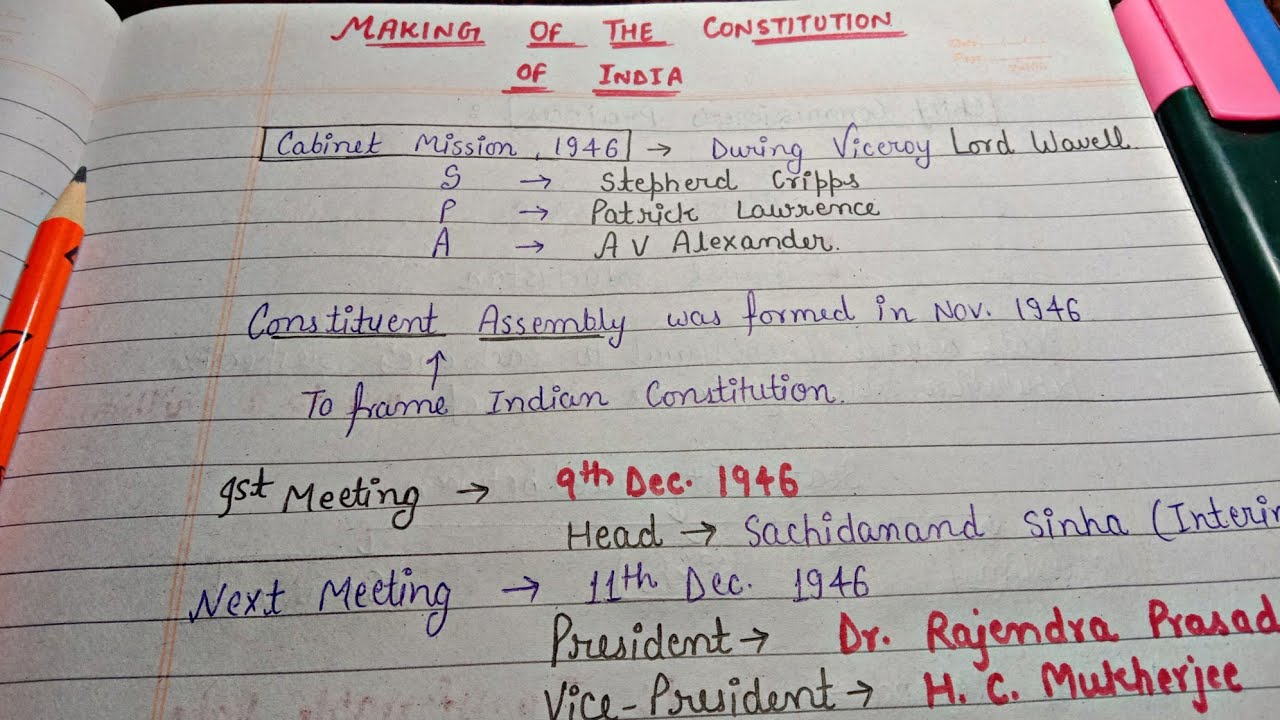 MAKING OF THE CONSTITUTION
OF INDIA
Cabinet Mission, 1946 → During Viceroy Lord Wavell
S → Stepherd Cripps
P → Patrick Lawrence
A → A V Alexander.
Constituent Assembly was formed in Nov. 1946
↑
To frame Indian Constitution.
1st Meeting → 9th Dec. 1946
Head → Sachidanand Sinha (Interim
Next Meeting → 11th Dec. 1946
President → Dr. Rajendra Prasad
Vice-President → H. C. Mukherjee